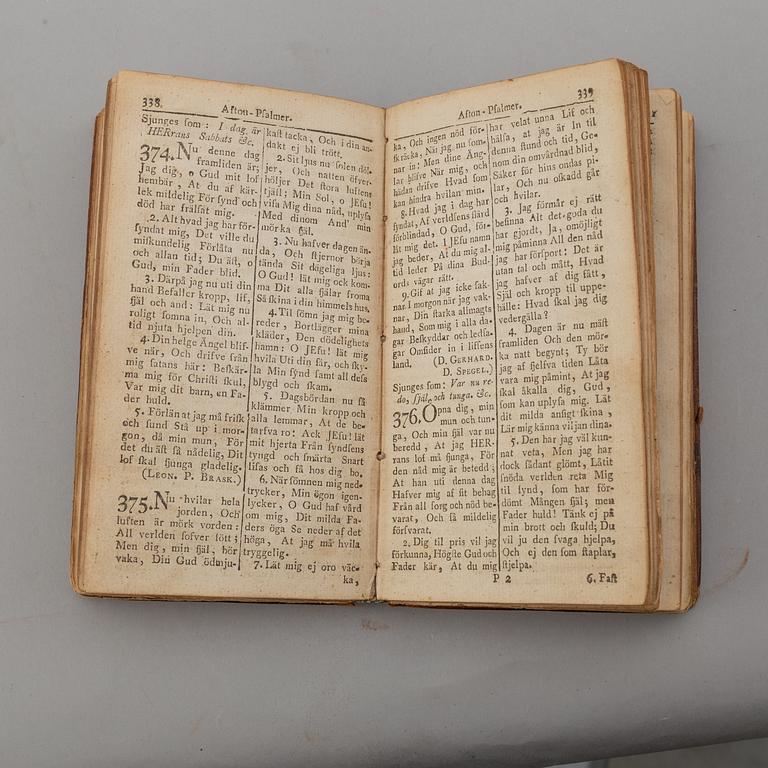 338.
Afton-Psalmer.
Sjunges som: I dag, är
HERrans Sabbats &c.
374. Nu denne dag
framliden är;
Jag dig, o Gud mit lof
hembär, At du af kär-
lek mildelig För synd och
död har frälsat mig.
2. Alt hvad jag har för-
syndat mig, Det ville du
miskundelig Förlåta nu
och allan tid; Du äst, o
Gud, min Fader blid.
3. Därpå jag nu uti din
hand Befaller kropp, lif,
själ och and: Lät mig nu
roligt somna in, Och al-
tid njuta hjelpen din.
4. Din helge Ängel blif-
ve når, Och drifve från
mig satans här: Beskär-
ma mig för Christi skul,
Var mig dit barn, en Fa-
der huld.
5. Förlän at jag må frisk
och sund Stå up i mor-
gon, då min mun, För
det du äst så nådelig, Dit
lof skal sjunga gladelig.
(Leon. P. Brask.)
375. Nu hvilar hela
jorden, Och
luften är mörk vorden:
All verlden sofver sött;
Men dig, min själ, hör
vaka, Din Gud ödmju-
kast tacka, Och i din an-
dakt ej bli trött.
2. Sit ljus nu solen döl-
jer, Och natten öfver-
höljer Det stora luftens
tjäll; Min Sol, o JEsu!
visa Mig dina nåd, uplysa
Med dinom And' min
mörka själ.
3. Nu hafver dagen än-
da, Och stjernor börja
tända Sit dägeliga ljus:
O Gud! lät mig ock kom-
ma Dit alla själar froma
Så skina i din himmels hus.
4. Til sömn jag mig be-
reder, Bortlägger mina
kläder, Den dödelighets
hamn: O JEsu! lät mig
hvila Uti din får, och sky-
la Min synd samt all dess
blygd och skam.
5. Dagsbördan nu så
klämmer Min kropp och
alla lemmar, At de be-
tarfva ro: Ack JEsu! lät
mit hjerta Från syndsens
tyngd och smärta Snart
lisas och få hos dig bo.
6. När sömnen mig ned-
trycker, Min ögon igen-
lycker, O Gud haf vård
om mig, Dit milda Fa-
ders öga Se neder af det
höga, At jag må hvila
tryggelig.
7. Lät mig ej oro väc-
ka,
339
Afton-Psalmer.
ka, Och ingen nöd för-
skräcka, När jag nu som-
nar in: Men dine Äng-
lar blifve När mig, och
hädan drifve Hvad som
kan hindra hvilan min.
8. Hvad jag i dag har
syndat, Af verldsens flärd
förblindad, O Gud, för-
låt mig det. I JEsu namn
jag beder, At du mig al-
tid leder På dina Bud-
ords vägar rätt.
9. Gif at jag icke sak-
nar I morgon när jag vak-
nar, Din starka allmagts
hand, Som mig i alla da-
gar Beskyddar och ledsa-
gar Omsider in i lifsens
land.
(D. Gerhard.
D. Spegel.)
Sjunges som: Var nu re-
do, själ och tunga. &c.
376. Opna dig, min
mun och tun-
ga, Och min själ var nu
beredd, At jag HER-
rans lof må sjunga, För
den nåd mig är betedd;
At han uti denna dag
Hafver mig af sit behag
Från all sorg och nöd be-
varat, Och så mildelig
försvarat.
2. Dig til pris vil jag
förkunna, Högste Gud och
Fader kär, At du mig
har velat unna Lif och
hälsa, at jag är In til
denna stund och tid, Ge-
nom din omvårdnad blid,
Säker för hins ondas pi-
lar, Och nu oskadd går
och hvilar.
3. Jag förmår ej rätt
besinna Alt det goda du
har gjordt, Ja, omöjligt
mig påminna All den nåd
jag har försport: Det är
utan tal och mått, Hvad
jag hafver af dig fått,
Själ och kropp til uppe-
hälle: Hvad skal jag dig
vedergälla?
4. Dagen är nu mäst
framliden Och den mör-
ka natt begynt; Ty bör
jag af sjelfva tiden Låta
vara mig påmint, At jag
skal åkalla dig, Gud,
som kan uplysa mig. Lät
dit milda ansigt skina,
Lär mig känna viljan dina.
5. Den har jag väl kun-
nat veta, Men jag har
dock sådant glömt, Låtit
snöda verlden reta Mig
til synd, som har för-
dömt Mången själ; men
Fader huld! Tänk ej på
min brott och skuld; Du
vil ju den svaga hjelpa,
Och ej den som staplar,
stjelpa.
P 2
6. Fast